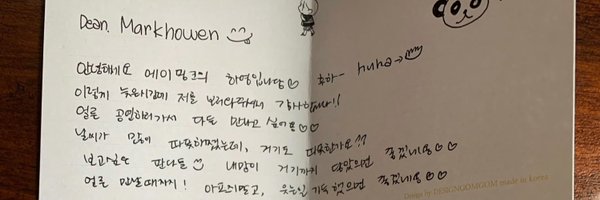 Dear. Markhowen
안녕하세요 에이핑크의 하영입니당♡ 추하- huha→
이렇게 늦은시간에 저를 보러와주셔서 감사합니다!!
얼른 공연하러가서 다들 만나고 싶어요♡♡
날씨가 많이 따뜻하졌는데, 거기도 따뜻한가요??
보고싶은 판다들 내맘이 거기까지 닿았으면 좋겠네요♡♡
얼른 만날때까지! 아프지말고, 웃는일 가득했으면 좋겠네요♡♡
Design by DESIGNGOMGOM made in korea